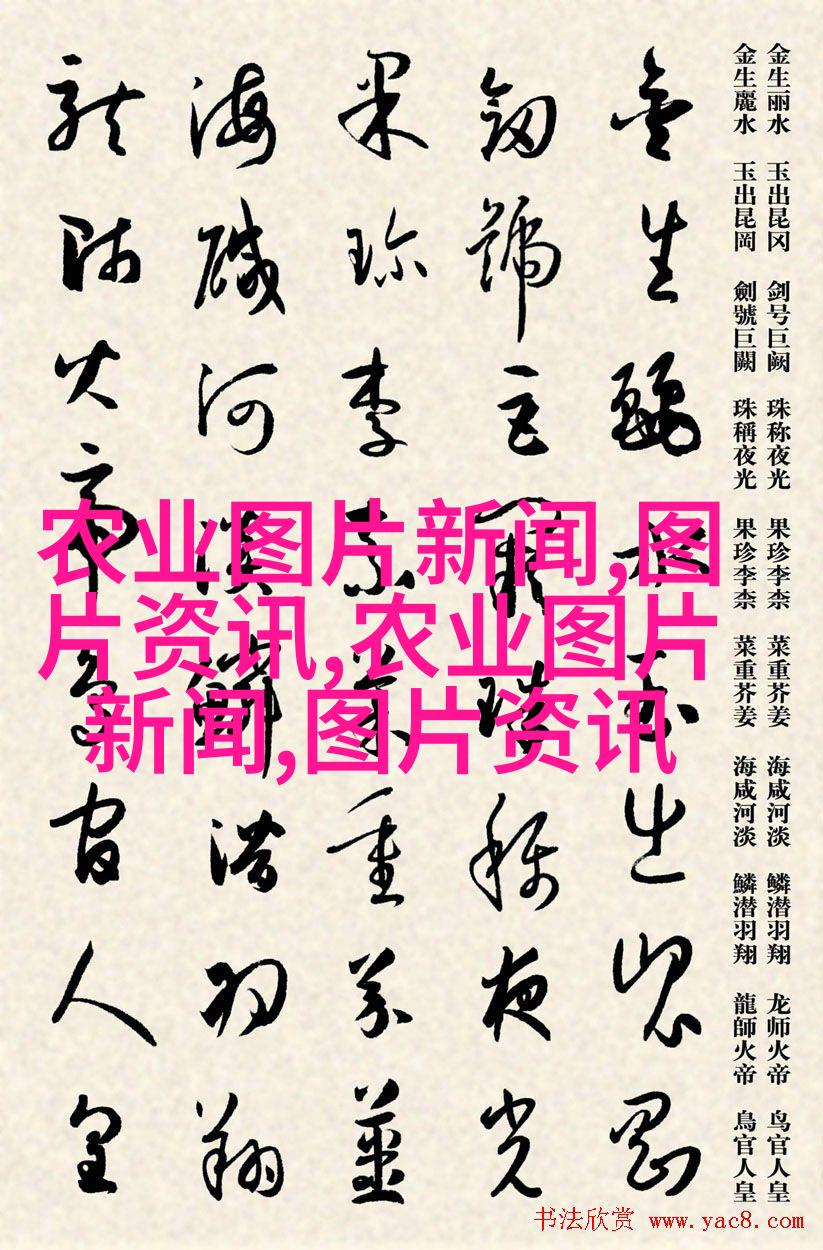 金生丽水 玉出昆冈 剑号巨阙 珠称夜光 果珍李柰 菜重芥姜 海咸河淡 鳞潜羽翔 龙师火帝 鸟官人皇
金生麗水 玉出昆岡 劍號巨闕 珠稱夜光 果珍李柰 菜重芥姜 海咸河淡 鱗潜羽翔 龍師火帝 鳥官人皇
金生麗水玉出崑岡
劒號巨闕珠稱夜光
果珎李柰菜重芥薑
海醎河淡鱗潜羽翔
龍師火帝鳥官人皇
农业图片新闻,图
片资讯,农业图片
新闻,图片资讯
书法欣赏 www.yac8.com